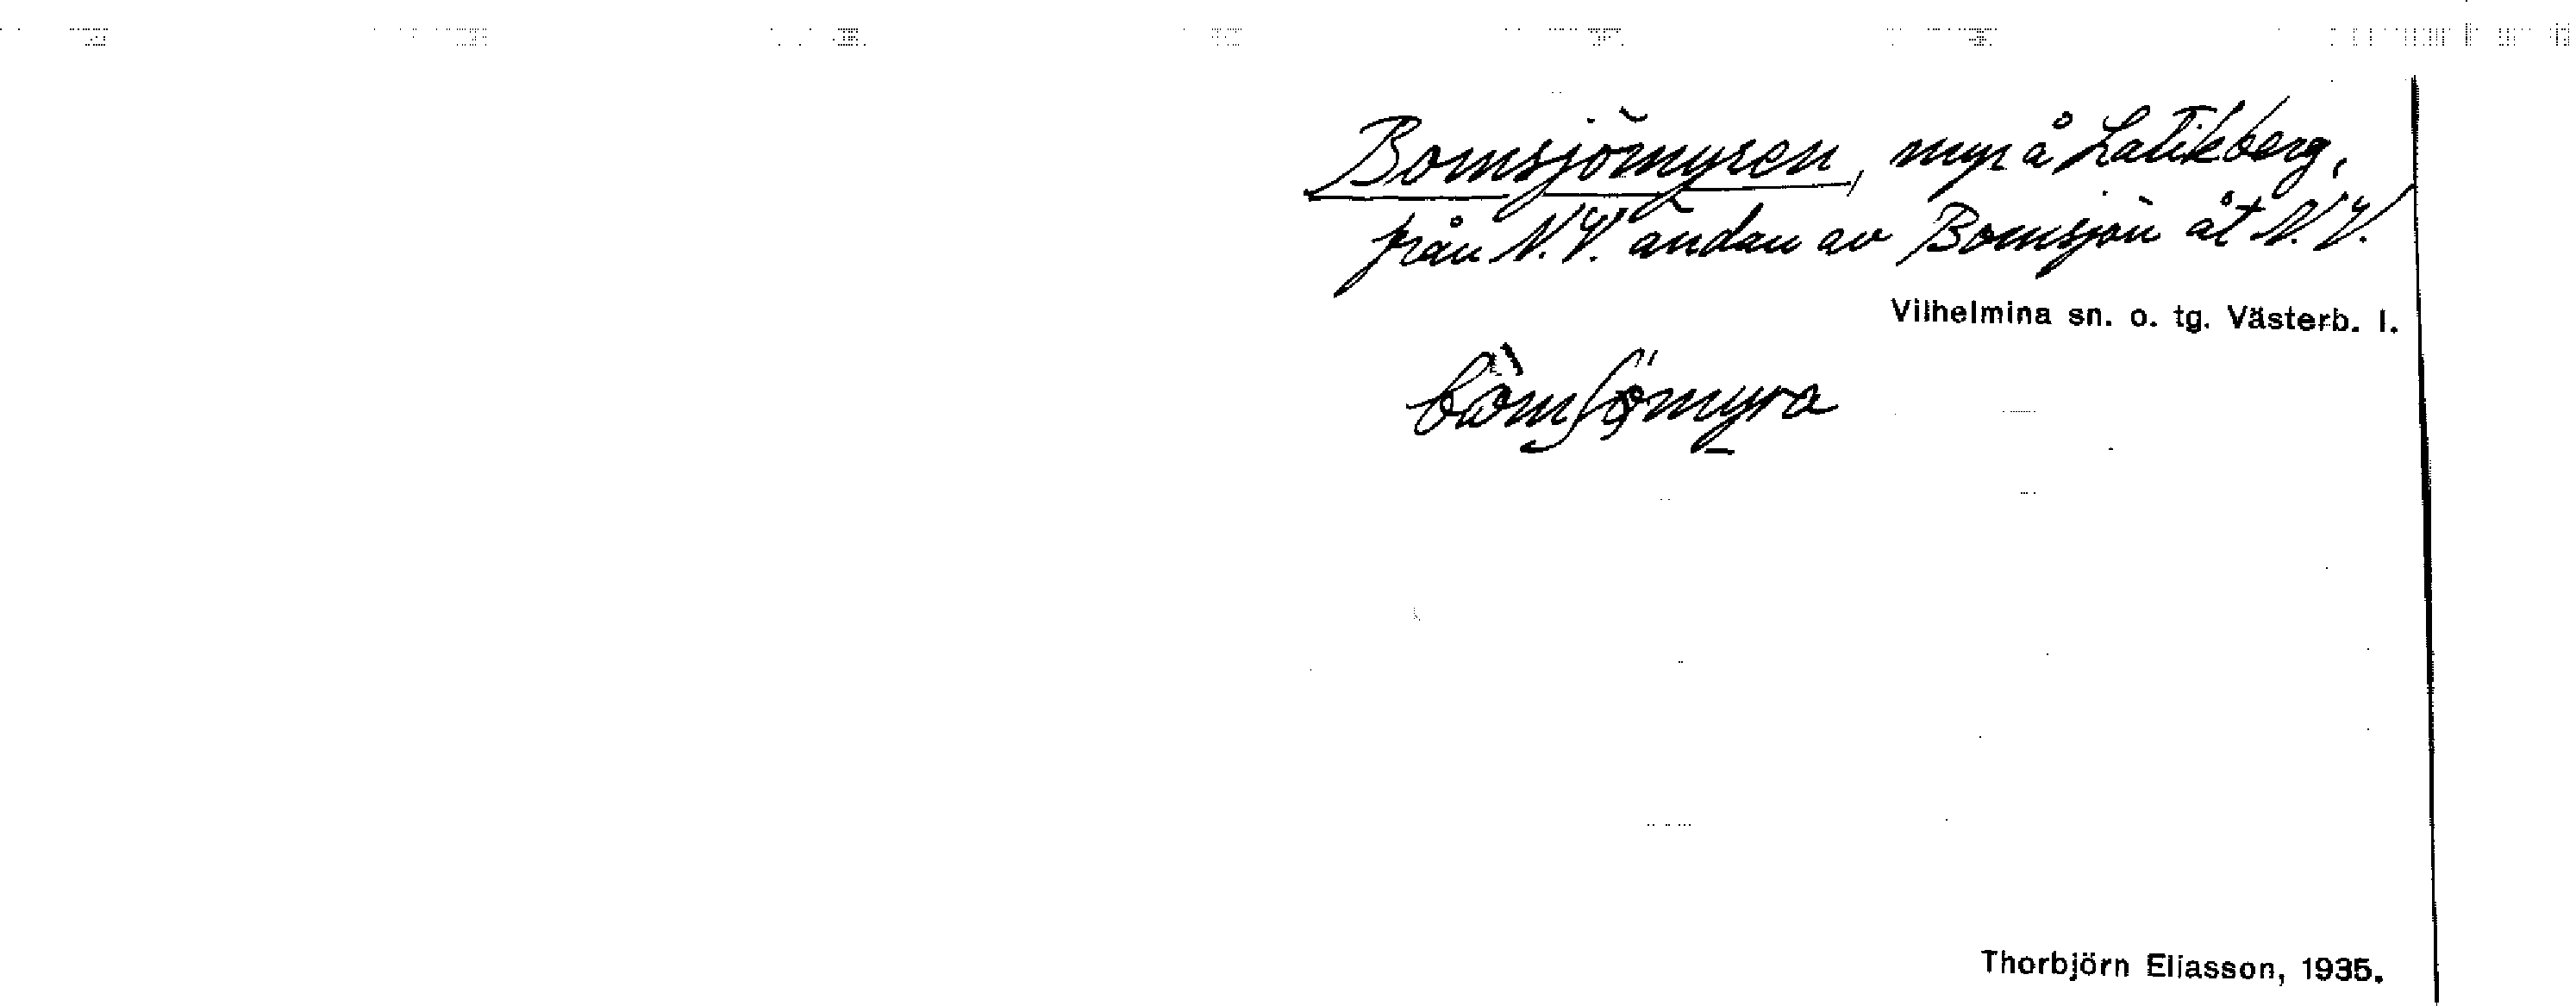 Bomsjömyren, myr å Latikberg,
från N.V. ändan av Bomsjön åt N.V.
Vilhelmina sn. o. tg. Västerb. l.
Thorbjörn Eliasson, 1935.